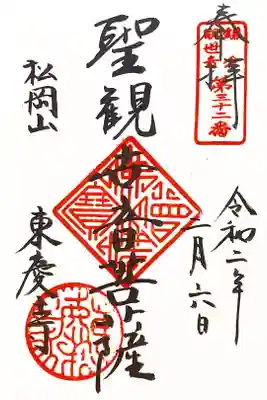 奉拝
第三十二番
令和二年
二月六日
聖観世音菩薩
松岡山
東慶寺